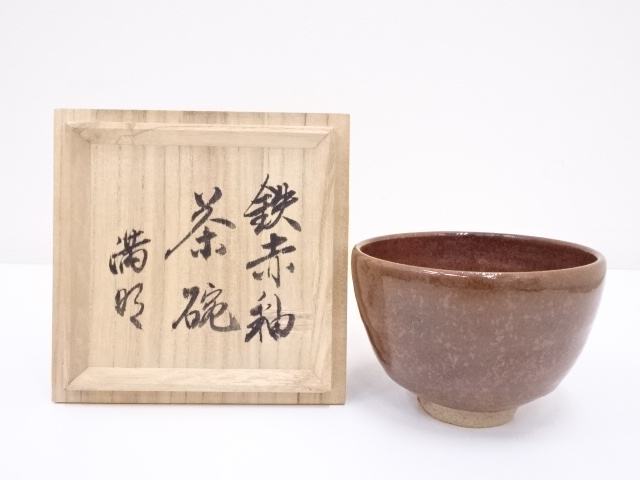 鉄赤釉
茶碗
満明